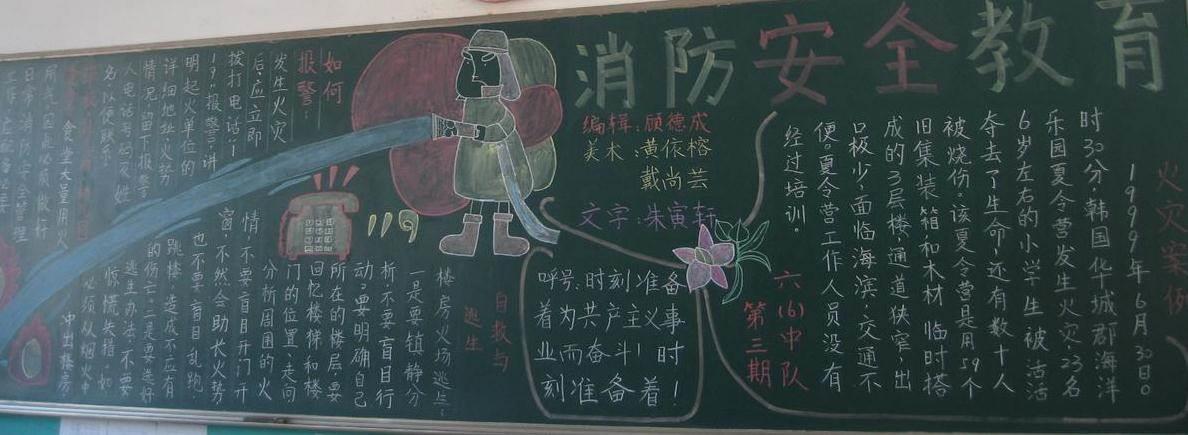 消防安全教育
火灾案例
1999年6月30日0
时30分,韩国华城郡海洋
乐园夏令营发生火灾,23名
6岁左右的小学生被活活
夺去了生命,还有数十人
被烧伤。该夏令营是用59个
旧集装箱和木材临时搭
成的3层楼,通道狭窄,出
口极少,面临海滨,交通不
便。夏令营工作人员没有
经过培训。
编辑:顾德成
美术:黄依榕
戴尚芸
文字:朱寅轩
六(6)中队
第三期
呼号:时刻准备
着为共产主义事
业而奋斗!时
刻准备着!
119
如何
报警:
发生火灾
后,应立即
拨打电话“1
19”报警,讲
明起火单位的
详细地址、火势
情况,留下报警
人电话号码及姓
名,以便联系。
自救与
逃生
楼房火场逃生:
一是要镇静分
析,不要盲目行
动。要明确自己
所在的楼层,要
回忆楼梯和楼
门的位置、走向
分析周围的火
情,不要盲目开门开
窗,不然会助长火势
也不要盲目乱跑
跳楼,造成不应有
的伤亡。二是要选好
逃生办法,不要
惊慌失措。如
必须从烟火中
冲出楼房